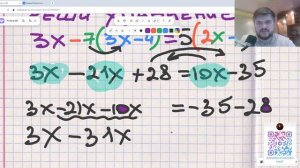 РЕШИ УРАВНЕНИЕ
3x-7(3x-4)=5(2x-
3x-21x+28=10x-35
3x-21x-10x=-35-28
3x-31x